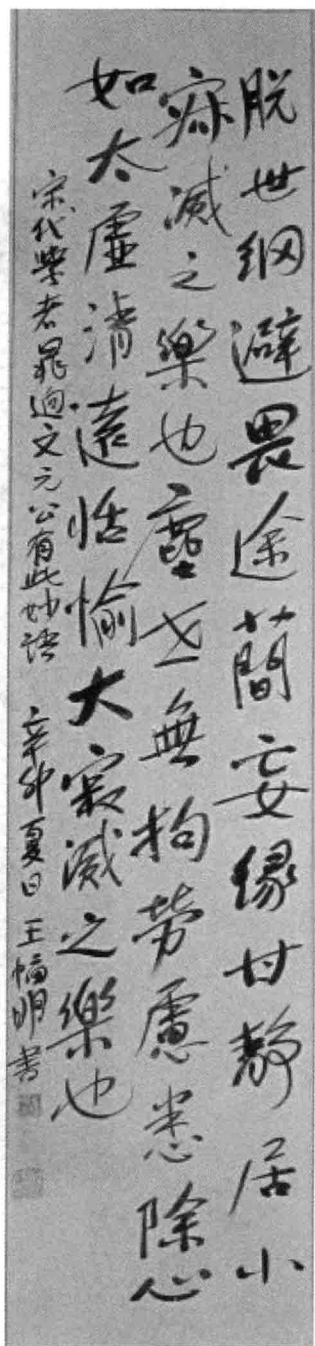 脱世网避畏途簡妄缘甘静居小
寂滅之樂也塵世無拘劳慮悉除心
如太虚清遠恬愉大寂滅之樂也
宋代學者晁迥文元公有此妙语 辛卯夏日 王幅明書